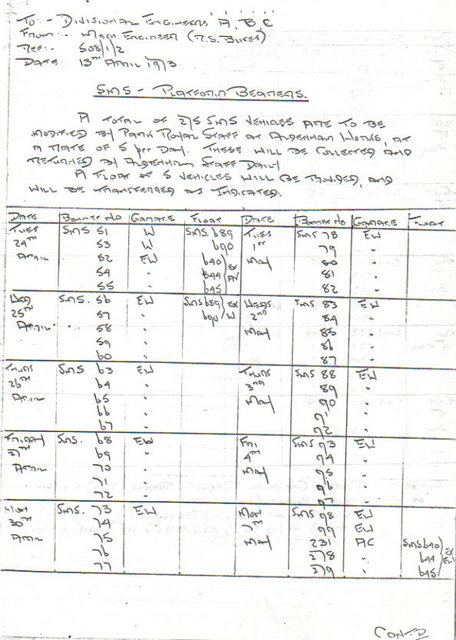 TO :- DIVISIONAL ENGINEERS A, B C
FROM :- ENGINEER
REF :- 508/1/2
DATE 13TH APRIL 1973.
SMS - PLATFORM BEARERS.
A TOTAL OF SMS VEHICLES ARE TO BE
MODIFIED BY PARK ROYAL STAFF AT ALDENHAM WORKS, AT
A RATE OF 5 PER DAY. THESE WILL BE COLLECTED AND
RETURNED BY ALDENHAM STAFF DAILY
A FLOAT OF 5 VEHICLES WILL BE AND
WILL BE TRANSFERRED AS INDICATED.
DATE BONNET NO GARAGE FLOAT DATE BONNET NO GARAGE FLOAT
TUES SMS 51 W SMS 689 TUES SMS 78 EW
24TH 53 W 690 1ST 79 "
APRIL 52 EW 640 EX MAY 80 "
54 " 644 81 "
55 " 645 82 "
WED SMS 56 EW SMS 689 EX WEDS SMS 83 EW
25TH 57 " 690 W 2ND 84 "
APRIL 58 " MAY 85 "
59 " 86 "
60 " 87 "
THURS SMS 63 EW THURS SMS 88 EW
26TH 64 " 3RD 89 "
APRIL 65 " MAY 90 "
66 " 91 "
67 " 92 "
FRIDAY SMS. 68 EW FRI SMS 93 EW
27TH 69 " 4TH 94 "
APRIL 70 " MAY 95 "
71 " 96 "
72 " 97 "
MON SMS. 73 EW MON SMS 98 EW
30TH 74 " 7TH 99 EW
APRIL 75 " MAY 231 AC SMS 640
76 " 278 " 644 EX
77 " 279 " 645
CONT'D